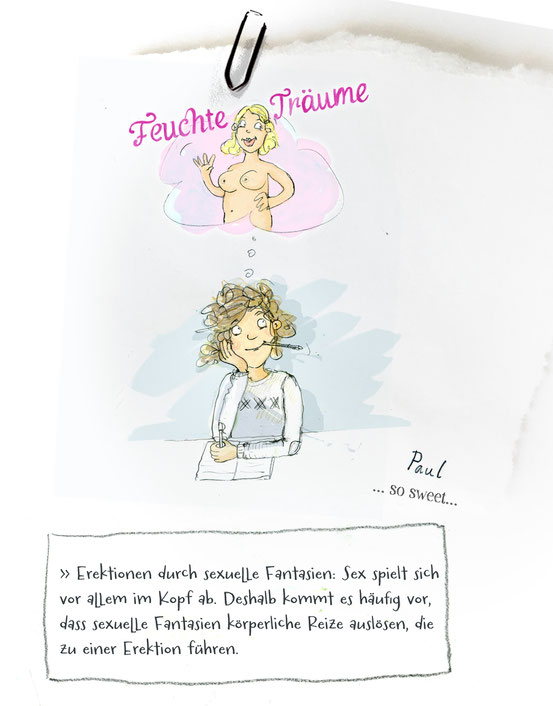 Feuchte Träume
Paul
... so sweet...
» Erektionen durch sexuelle Fantasien: Sex spielt sich
vor allem im Kopf ab. Deshalb kommt es häufig vor,
dass sexuelle Fantasien körperliche Reize auslösen, die
zu einer Erektion führen.